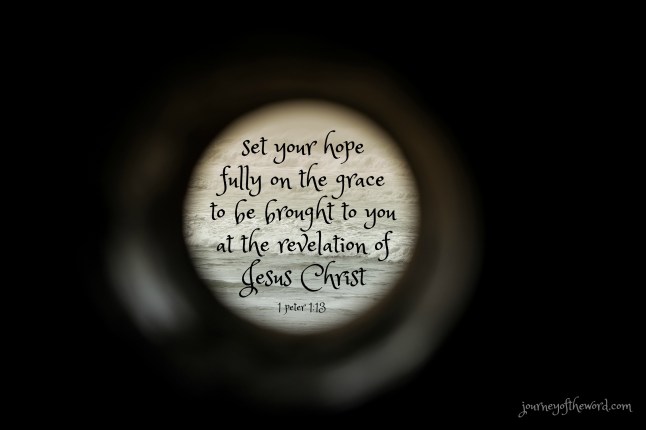 set your hope
fully on the grace
to be brought to you
at the revelation of
Jesus Christ
1 peter 1:13
journeyoftheword.com